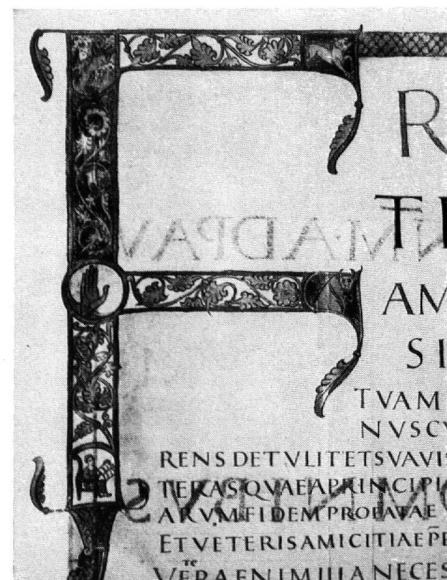 FR
T
AM
SI
TVAM
NVSCV
RENS DETVLITETSVAVI
TERASQVAEAPRINCIPI
ARVMFIDEMPROBATAE
ETVETERISAMICITIAE
VERAENIMILLANECES